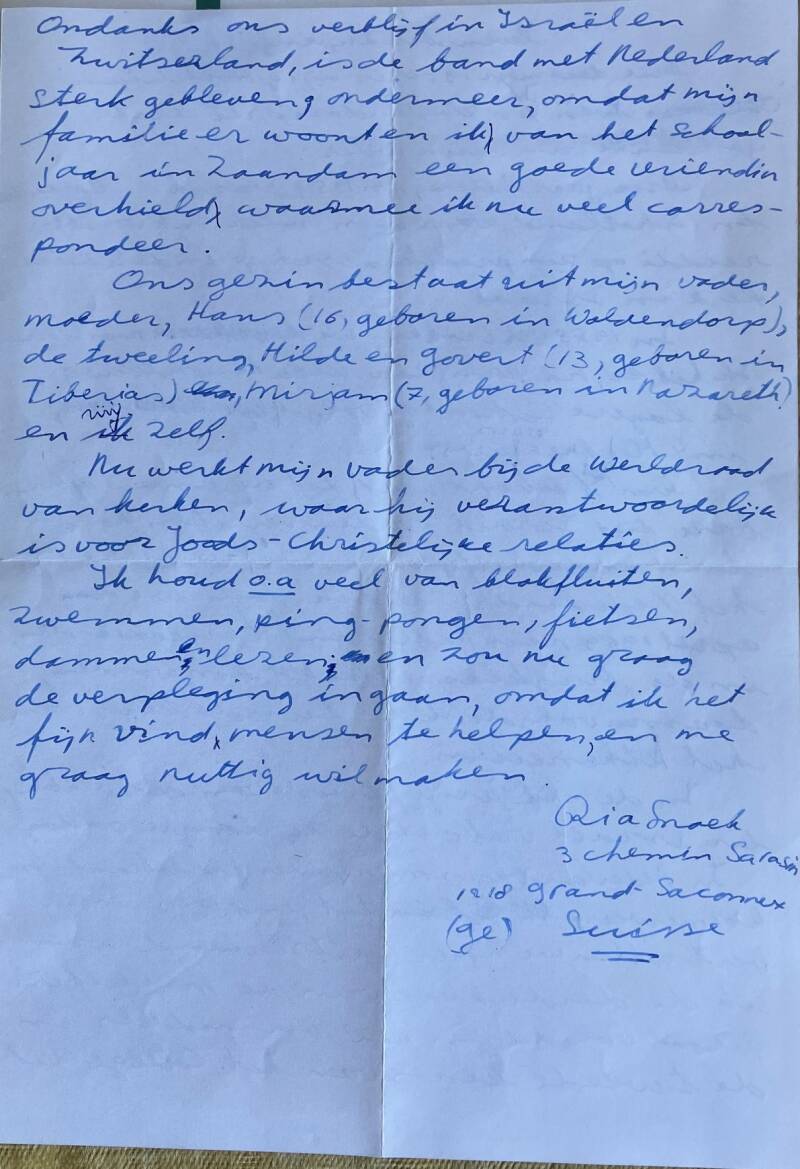 Ondanks ons verblijf in Israël en
Zwitserland, is de band met Nederland
sterk gebleven, ondermeer, omdat mijn
familie er woont en ik, van het school-
jaar in Zaandam een goede vriendin
overhield, waarmee ik nu veel corres-
pondeer.
Ons gezin bestaat uit mijn vader,
moeder, Hans (16, geboren in Woldendorp),
de tweeling, Hilde en Govert (13, geboren in
Tiberias), Mirjam (7, geboren in Nazareth)
mij
en zelf.
Nu werkt mijn vader bij de Werldraad
van kerken, waar hij verantwoordelijk
is voor Joods-Christelijke relaties.
Ik houd o.a veel van blokfluiten,
zwemmen, ping-pongen, fietsen,
dammen en lezen, en zou nu graag
de verpleging in gaan, omdat ik het
fijn vind, mensen te helpen, en me
graag nuttig wil maken.
Ria Snoek
3 chemin Sarasin
1218 Grand-Saconnex
(ge) Suisse